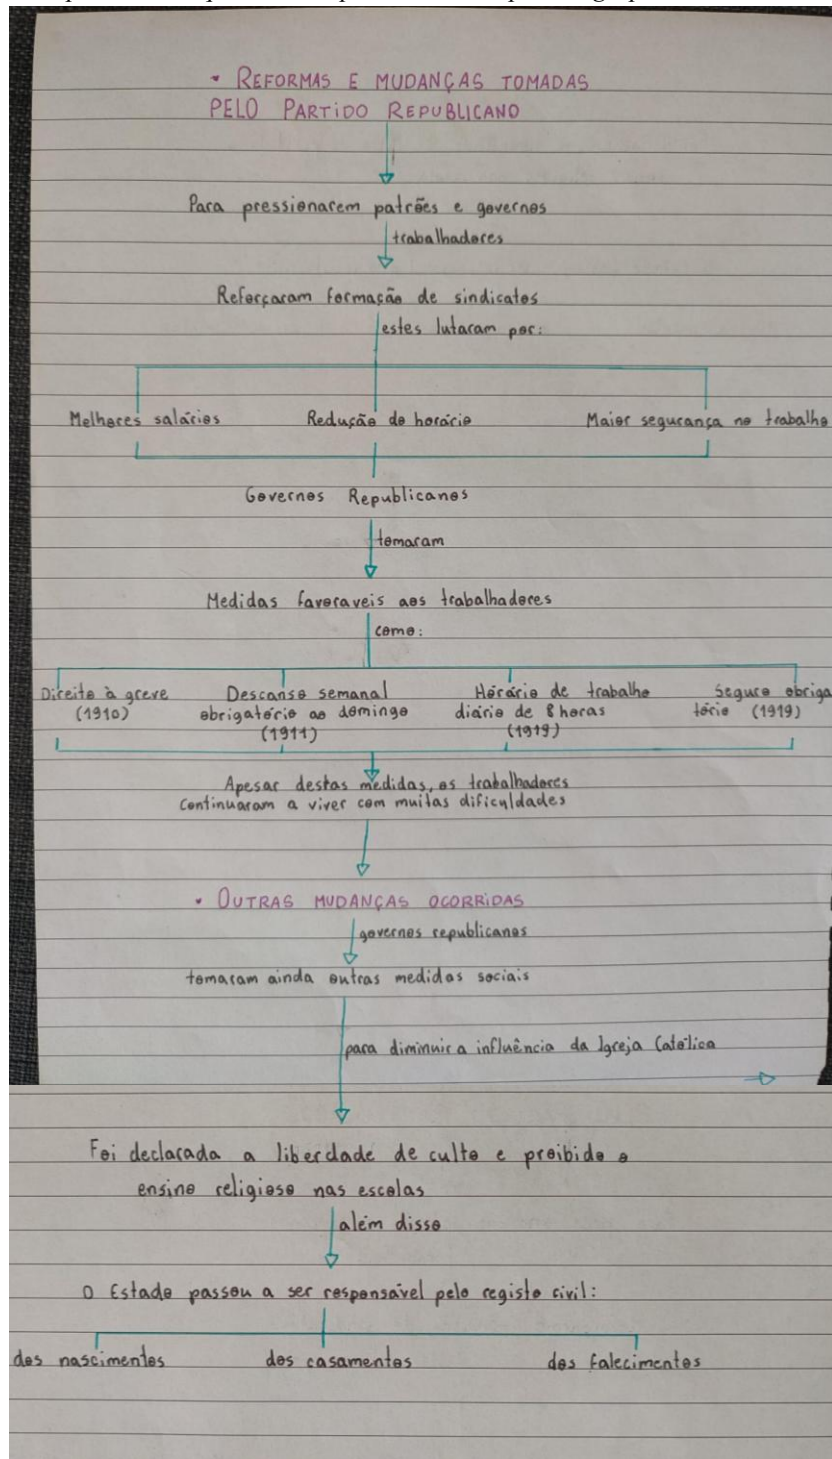 • REFORMAS E MUDANÇAS TOMADAS
PELO PARTIDO REPUBLICANO
Para pressionarem patrões e governos
trabalhadores
Reforçaram formação de sindicatos
estes lutaram por:
Melhores salários Redução do horário Maior segurança no trabalho
Governos Republicanos
tomaram
Medidas favoraveis aos trabalhadores
como:
Direito à greve Descanso semanal Hórário de trabalho Seguro obriga
(1910) obrigatório ao domingo diário de 8 horas tório (1919)
(1911) (1919)
Apesar destas medidas, os trabalhadores
Continuaram a viver com muitas dificuldades
• OUTRAS MUDANÇAS OCORRIDAS
governos republicanos
tomaram ainda outras medidas sociais
para diminuir a influência da Igreja Católica
Foi declarada a liberdade de culto e proibido o
ensino religioso nas escolas
além disso
O Estado passou a ser responsável pelo registo civil:
dos nascimentos dos casamentos dos falecimentos